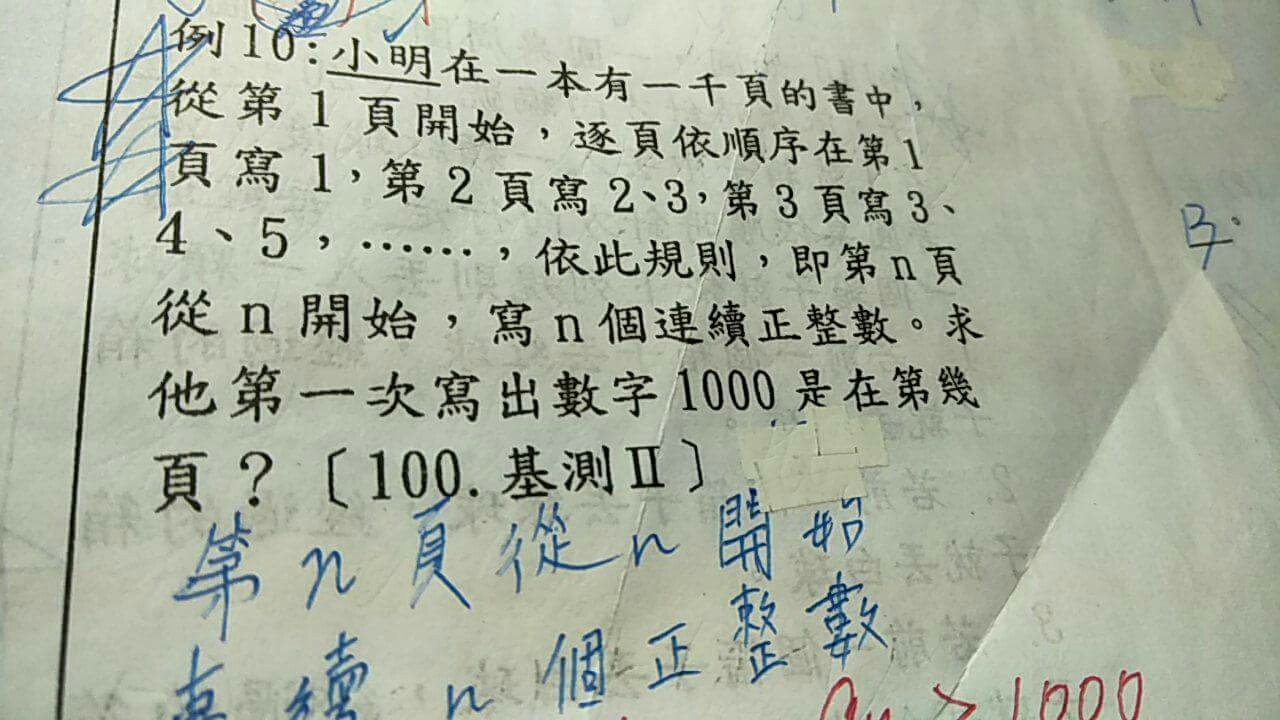 例10:小明在一本有一千頁的書中，
從第1頁開始，逐頁依順序在第1
頁寫1，第2頁寫2、3，第3頁寫3、
4、5，……，依此規則，即第n頁
從n開始，寫n個連續正整數。求
他第一次寫出數字1000是在第幾
頁？〔100.基測Ⅱ〕
第n頁從n開始
續n個正整數
>1000